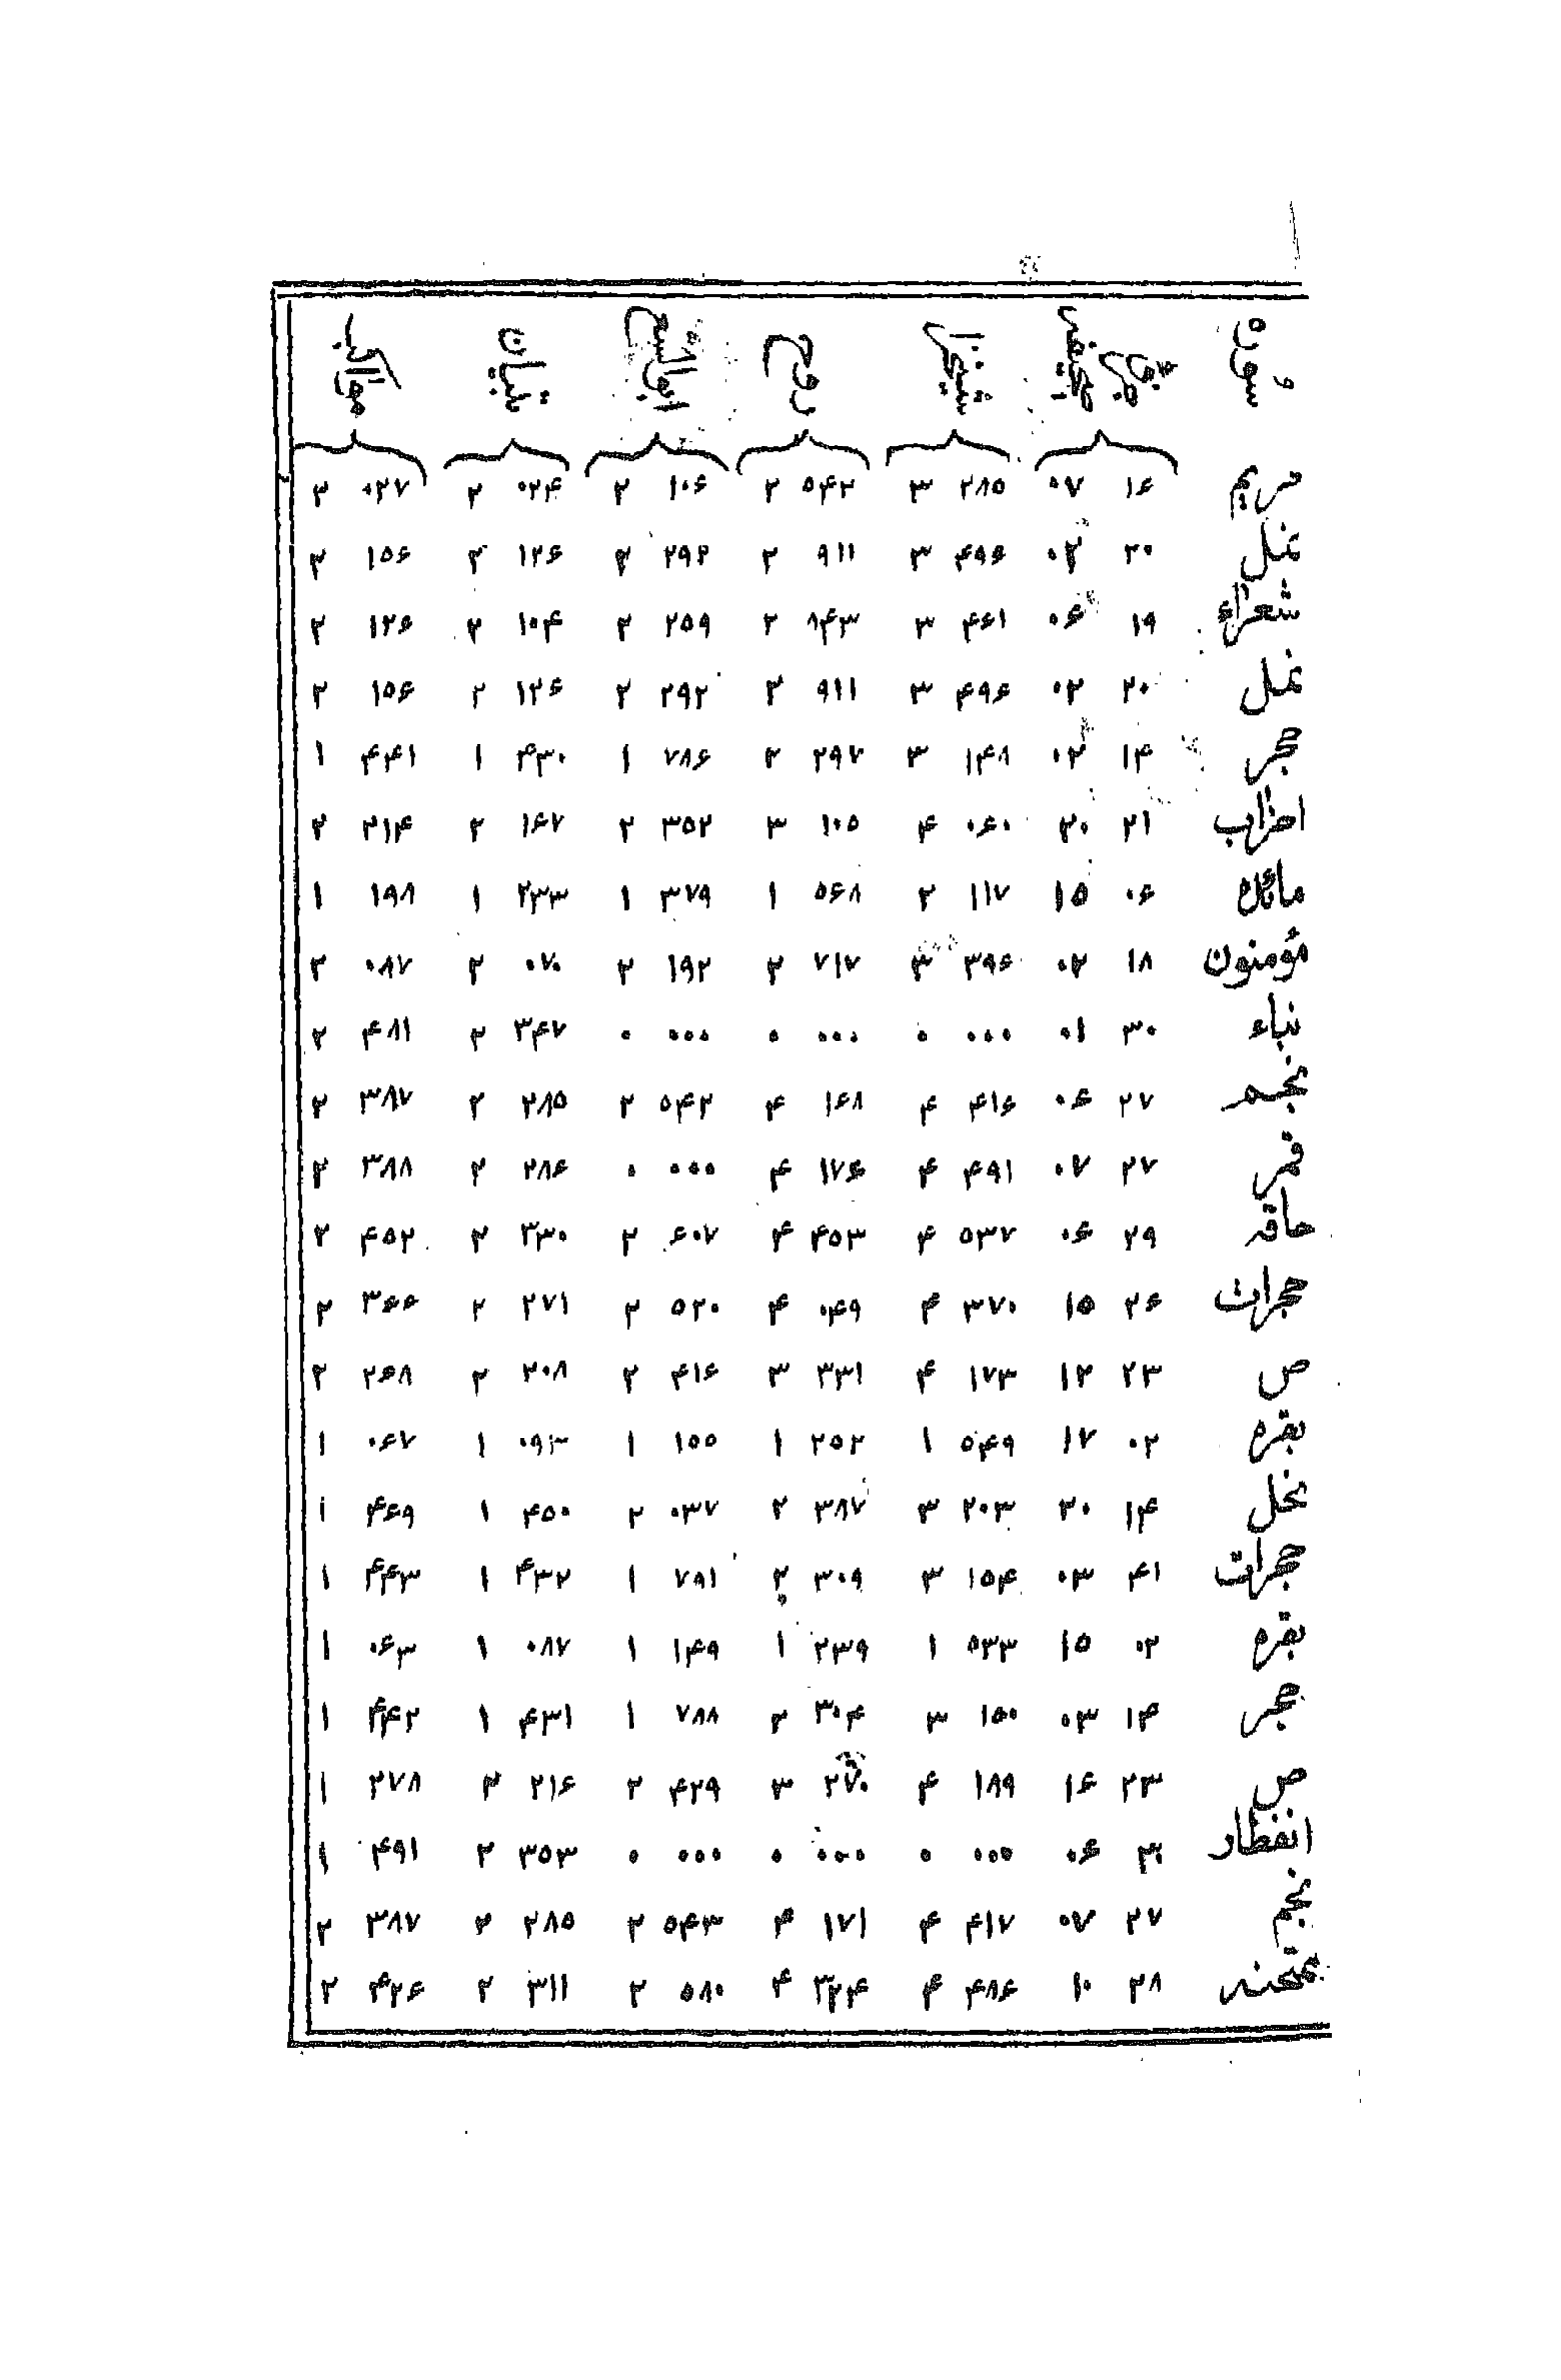 سوره شیخزاده روح ابو السعود تبیان مواکب
مریم ۱۶ ۰۷ ۲۸۵ ۳ ۵۴۲ ۲ ۱۰۶ ۲ ۰۲۴ ۲ ۰۲۷ ۲
نمل ۲۰ ۰۲ ۴۹۶ ۳ ۹۱۱ ۲ ۲۹۲ ۲ ۱۲۶ ۲ ۱۵۶ ۲
شعراء ۱۹ ۰۶ ۴۶۱ ۳ ۸۴۳ ۲ ۲۵۹ ۲ ۱۰۴ ۲ ۱۲۶ ۲
نمل ۲۰ ۰۲ ۴۹۶ ۳ ۹۱۱ ۲ ۲۹۲ ۲ ۱۲۶ ۲ ۱۵۶ ۲
حجر ۱۴ ۰۲ ۱۴۸ ۳ ۲۹۷ ۲ ۷۸۶ ۱ ۴۳۰ ۱ ۴۴۱ ۱
احزاب ۲۱ ۲۰ ۰۶۰ ۴ ۱۰۵ ۳ ۳۵۲ ۲ ۱۶۷ ۲ ۲۱۴ ۲
مائده ۰۶ ۱۵ ۱۱۷ ۲ ۵۶۸ ۱ ۳۷۹ ۱ ۲۳۳ ۱ ۱۹۸ ۱
مؤمنون ۱۸ ۰۲ ۳۹۶ ۳ ۷۱۷ ۲ ۱۹۲ ۲ ۰۷۰ ۲ ۰۸۷ ۲
نباء ۳۰ ۰۱ ۰۰۰ ۰ ۰۰۰ ۰ ۰۰۰ ۰ ۳۴۷ ۲ ۴۸۱ ۲
نجم ۲۷ ۰۶ ۴۱۶ ۴ ۱۶۸ ۴ ۵۴۲ ۲ ۲۸۵ ۲ ۳۸۷ ۲
قمر ۲۷ ۰۷ ۴۹۱ ۴ ۱۷۶ ۴ ۰۰۰ ۰ ۲۸۶ ۲ ۳۸۸ ۲
حاقه ۲۹ ۰۶ ۵۳۷ ۴ ۴۵۳ ۴ ۶۰۷ ۲ ۳۳۰ ۲ ۴۵۲ ۲
حجرات ۲۶ ۱۵ ۳۷۰ ۴ ۰۴۹ ۴ ۵۲۰ ۲ ۲۷۱ ۲ ۳۶۶ ۲
ص ۲۳ ۱۲ ۱۷۳ ۴ ۳۳۱ ۳ ۴۱۶ ۲ ۲۰۸ ۲ ۲۶۸ ۲
بقره ۰۲ ۱۷ ۵۴۹ ۱ ۲۵۲ ۱ ۱۵۵ ۱ ۰۹۳ ۱ ۰۶۷ ۱
نحل ۱۴ ۲۰ ۲۰۳ ۳ ۳۸۷ ۲ ۰۳۷ ۲ ۴۵۰ ۱ ۴۶۹ ۱
حجرات ۴۱ ۰۳ ۱۵۴ ۳ ۳۰۹ ۲ ۷۹۱ ۱ ۴۳۲ ۱ ۴۴۳ ۱
بقره ۰۲ ۱۵ ۵۳۳ ۱ ۲۳۹ ۱ ۱۴۹ ۱ ۰۸۷ ۱ ۰۶۳ ۱
حجر ۱۴ ۰۳ ۱۵۰ ۳ ۳۰۴ ۲ ۷۸۸ ۱ ۴۳۱ ۱ ۴۴۲ ۱
ص ۲۳ ۱۶ ۱۸۹ ۴ ۳ ۴۲۹ ۲ ۲۱۶ ۲ ۲۷۸ ۱
انفطار ۰۶ ۰۰۰ ۰ ۰۰۰ ۰ ۰۰۰ ۰ ۳۵۳ ۲ ۴۹۱ ۱
نجم ۲۷ ۰۷ ۴۱۷ ۴ ۱۷۱ ۴ ۵۴۳ ۲ ۲۸۵ ۲ ۳۸۷ ۲
ممتحنه ۲۸ ۱۰ ۴۸۶ ۴ ۳۲۴ ۴ ۵۸۰ ۲ ۳۱۱ ۲ ۴۲۶ ۲